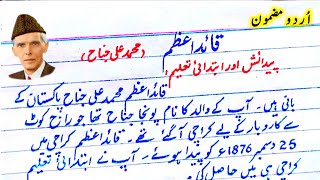 اُردو مضمون
قائداعظم
(محمد علی جناح)
پیدائش اور ابتدائی تعلیم
قائداعظم محمد علی جناح پاکستان کے
بانی ہیں۔ آپ کے والد کا نام پونجا جناح تھا جو راج کوٹ
سے کاروبار کے لیے کراچی آگئے تھے۔ قائداعظم کراچی میں
25 دسمبر 1876ء کو پیدا ہوئے۔ آپ نے ابتدائی تعلیم
کراچی ہی میں حاصل کی